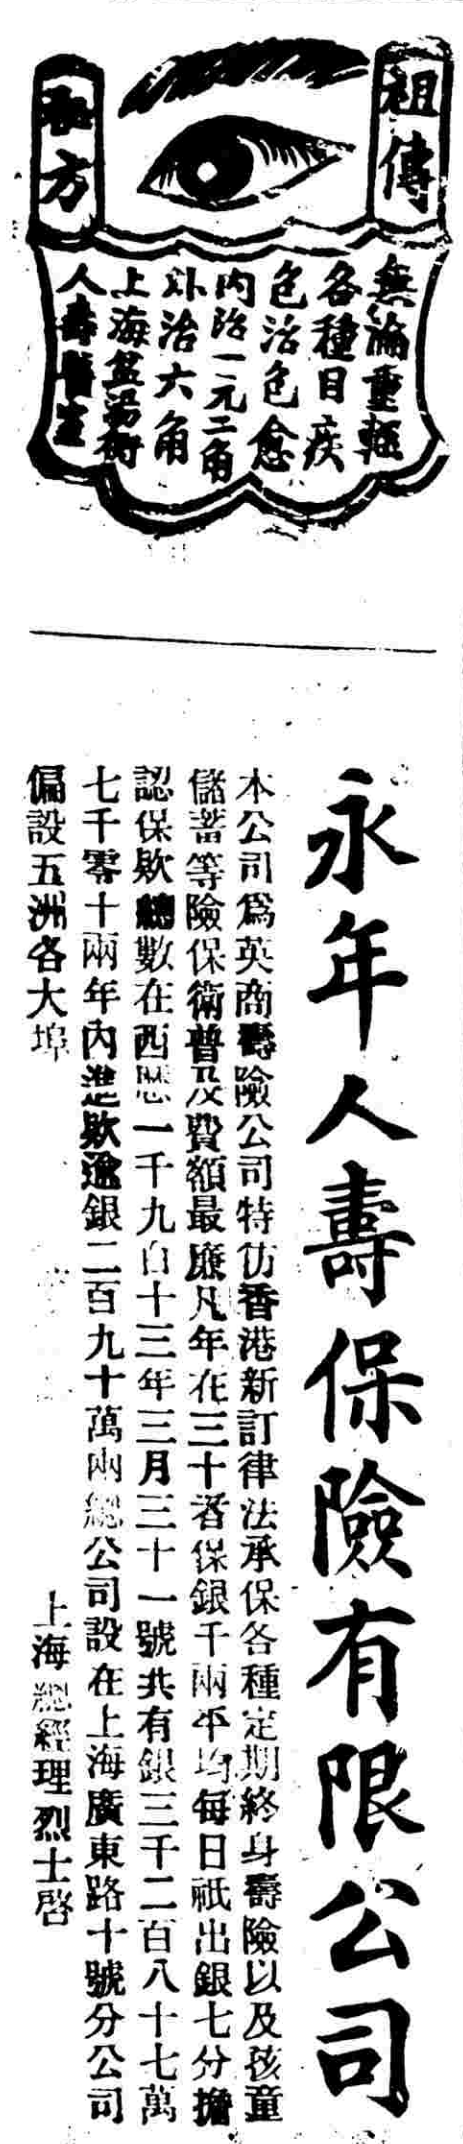 祖傳
秘方
無論重輕
各種目疾
包治包愈
內治一元二角
外治六角
上海盆湯衖
人壽醫室
永年人壽保險有限公司
本公司爲英商壽險公司特仿香港新訂律法承保各種定期終身壽險以及孩童
儲蓄等險保衛普及費額最廉凡年在三十者保銀千兩平均每日祇出銀七分擔
認保欵總數在西歷一千九百十三年三月三十一號共有銀三千二百八十七萬
七千零十兩年內進欵逾銀二百九十萬兩總公司設在上海廣東路十號分公司
偏設五洲各大埠
上海總經理烈士啓